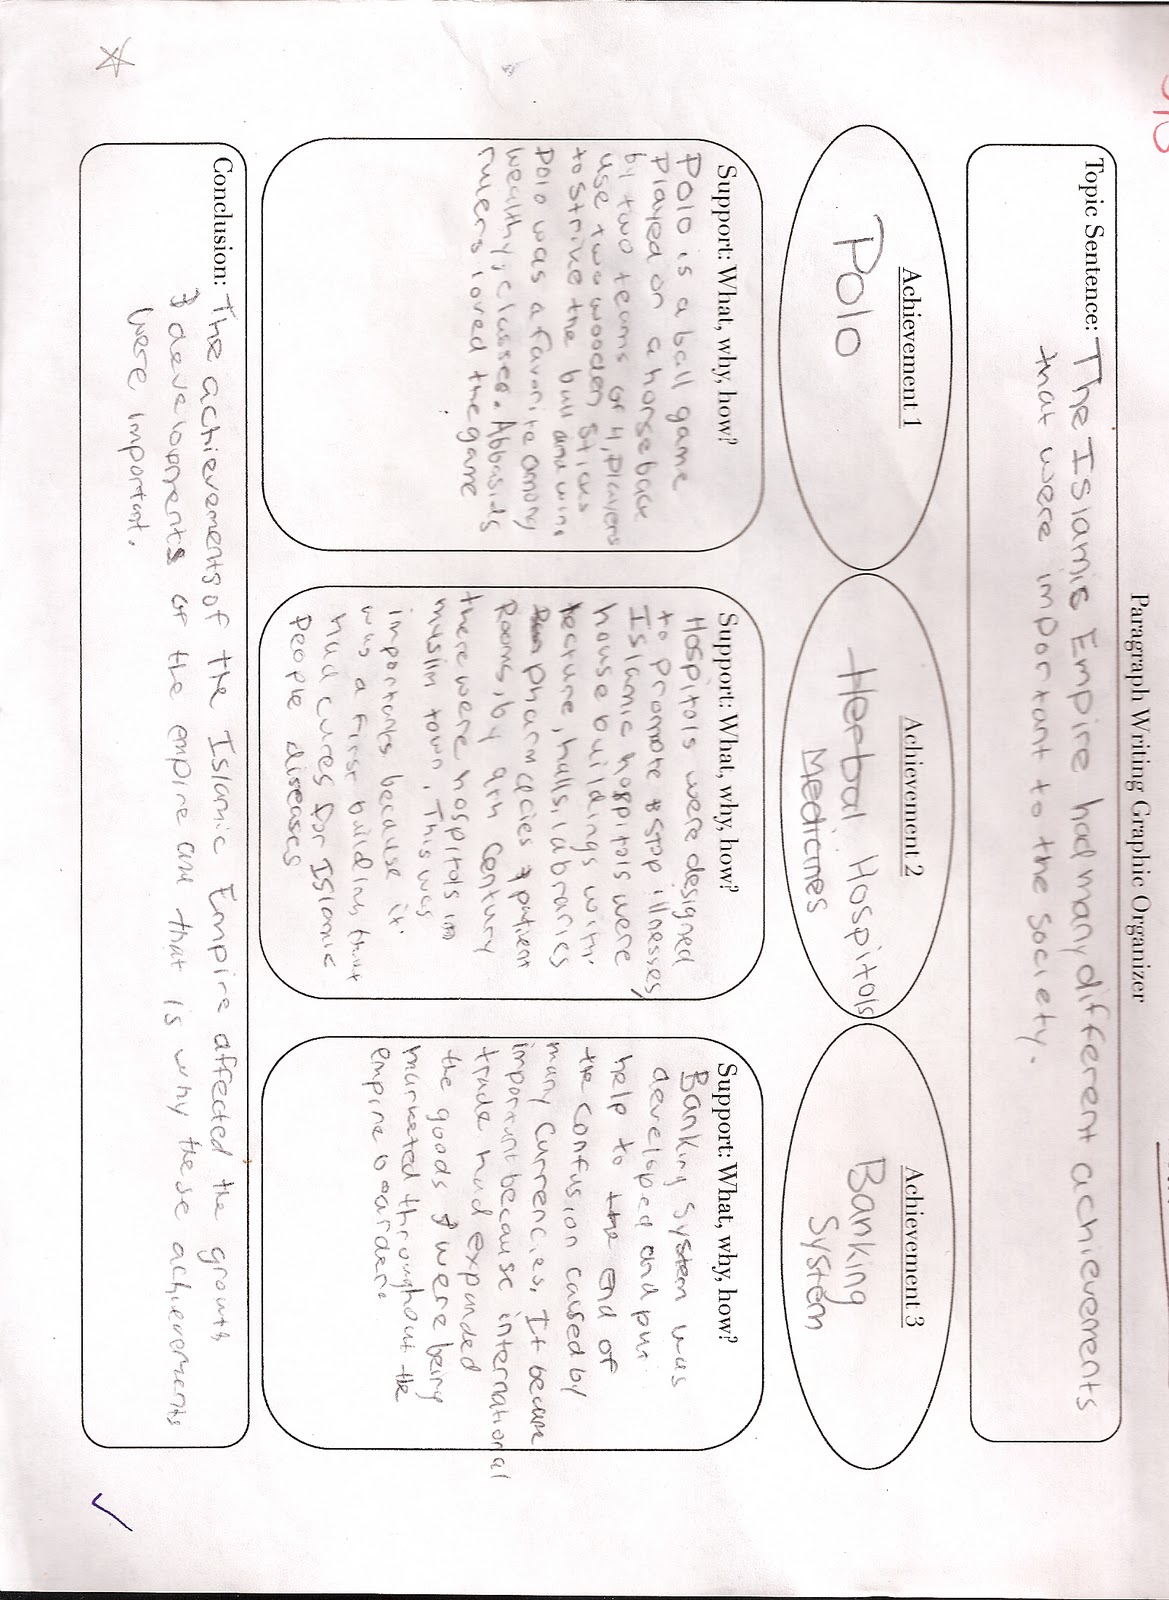 Paragraph Writing Graphic Organizer
Topic Sentence: The Islamis Empire had many different achievements
that were important to the society.
Achievement 1
Polo
Achievement 2
Herbal Hospitols
Medicines
Achievement 3
Banking
System
Support: What, why, how?
Polo is a ball game
Played on a horseback
by two teams of 4, players
use two wooden sticks
to strike the ball and wins
Polo was a favorite among
wealthy; classes. Abbasids
rulers loved the game
Support: What, why, how?
Hospitols were designed
to promote & stop illnesses,
Islamic hospitols were
house buildings with
lecture, halls, labraries
pharmcies & patient
Rooms, by 9th century
there were hospitols in
muslim town. This was
importants because it
was a First building that
had cures for Islamic
People diseases
Support: What, why, how?
Banking system was
developed and put
help to the end of
the confusion caused by
many currencies. It became
important because international
trade had expanded
the goods & were being
marketed throughout the
empire boarder.
Conclusion: The achievements of the Islamic Empire affected the growth
& developments of the empire and that is why these achievements
were important.